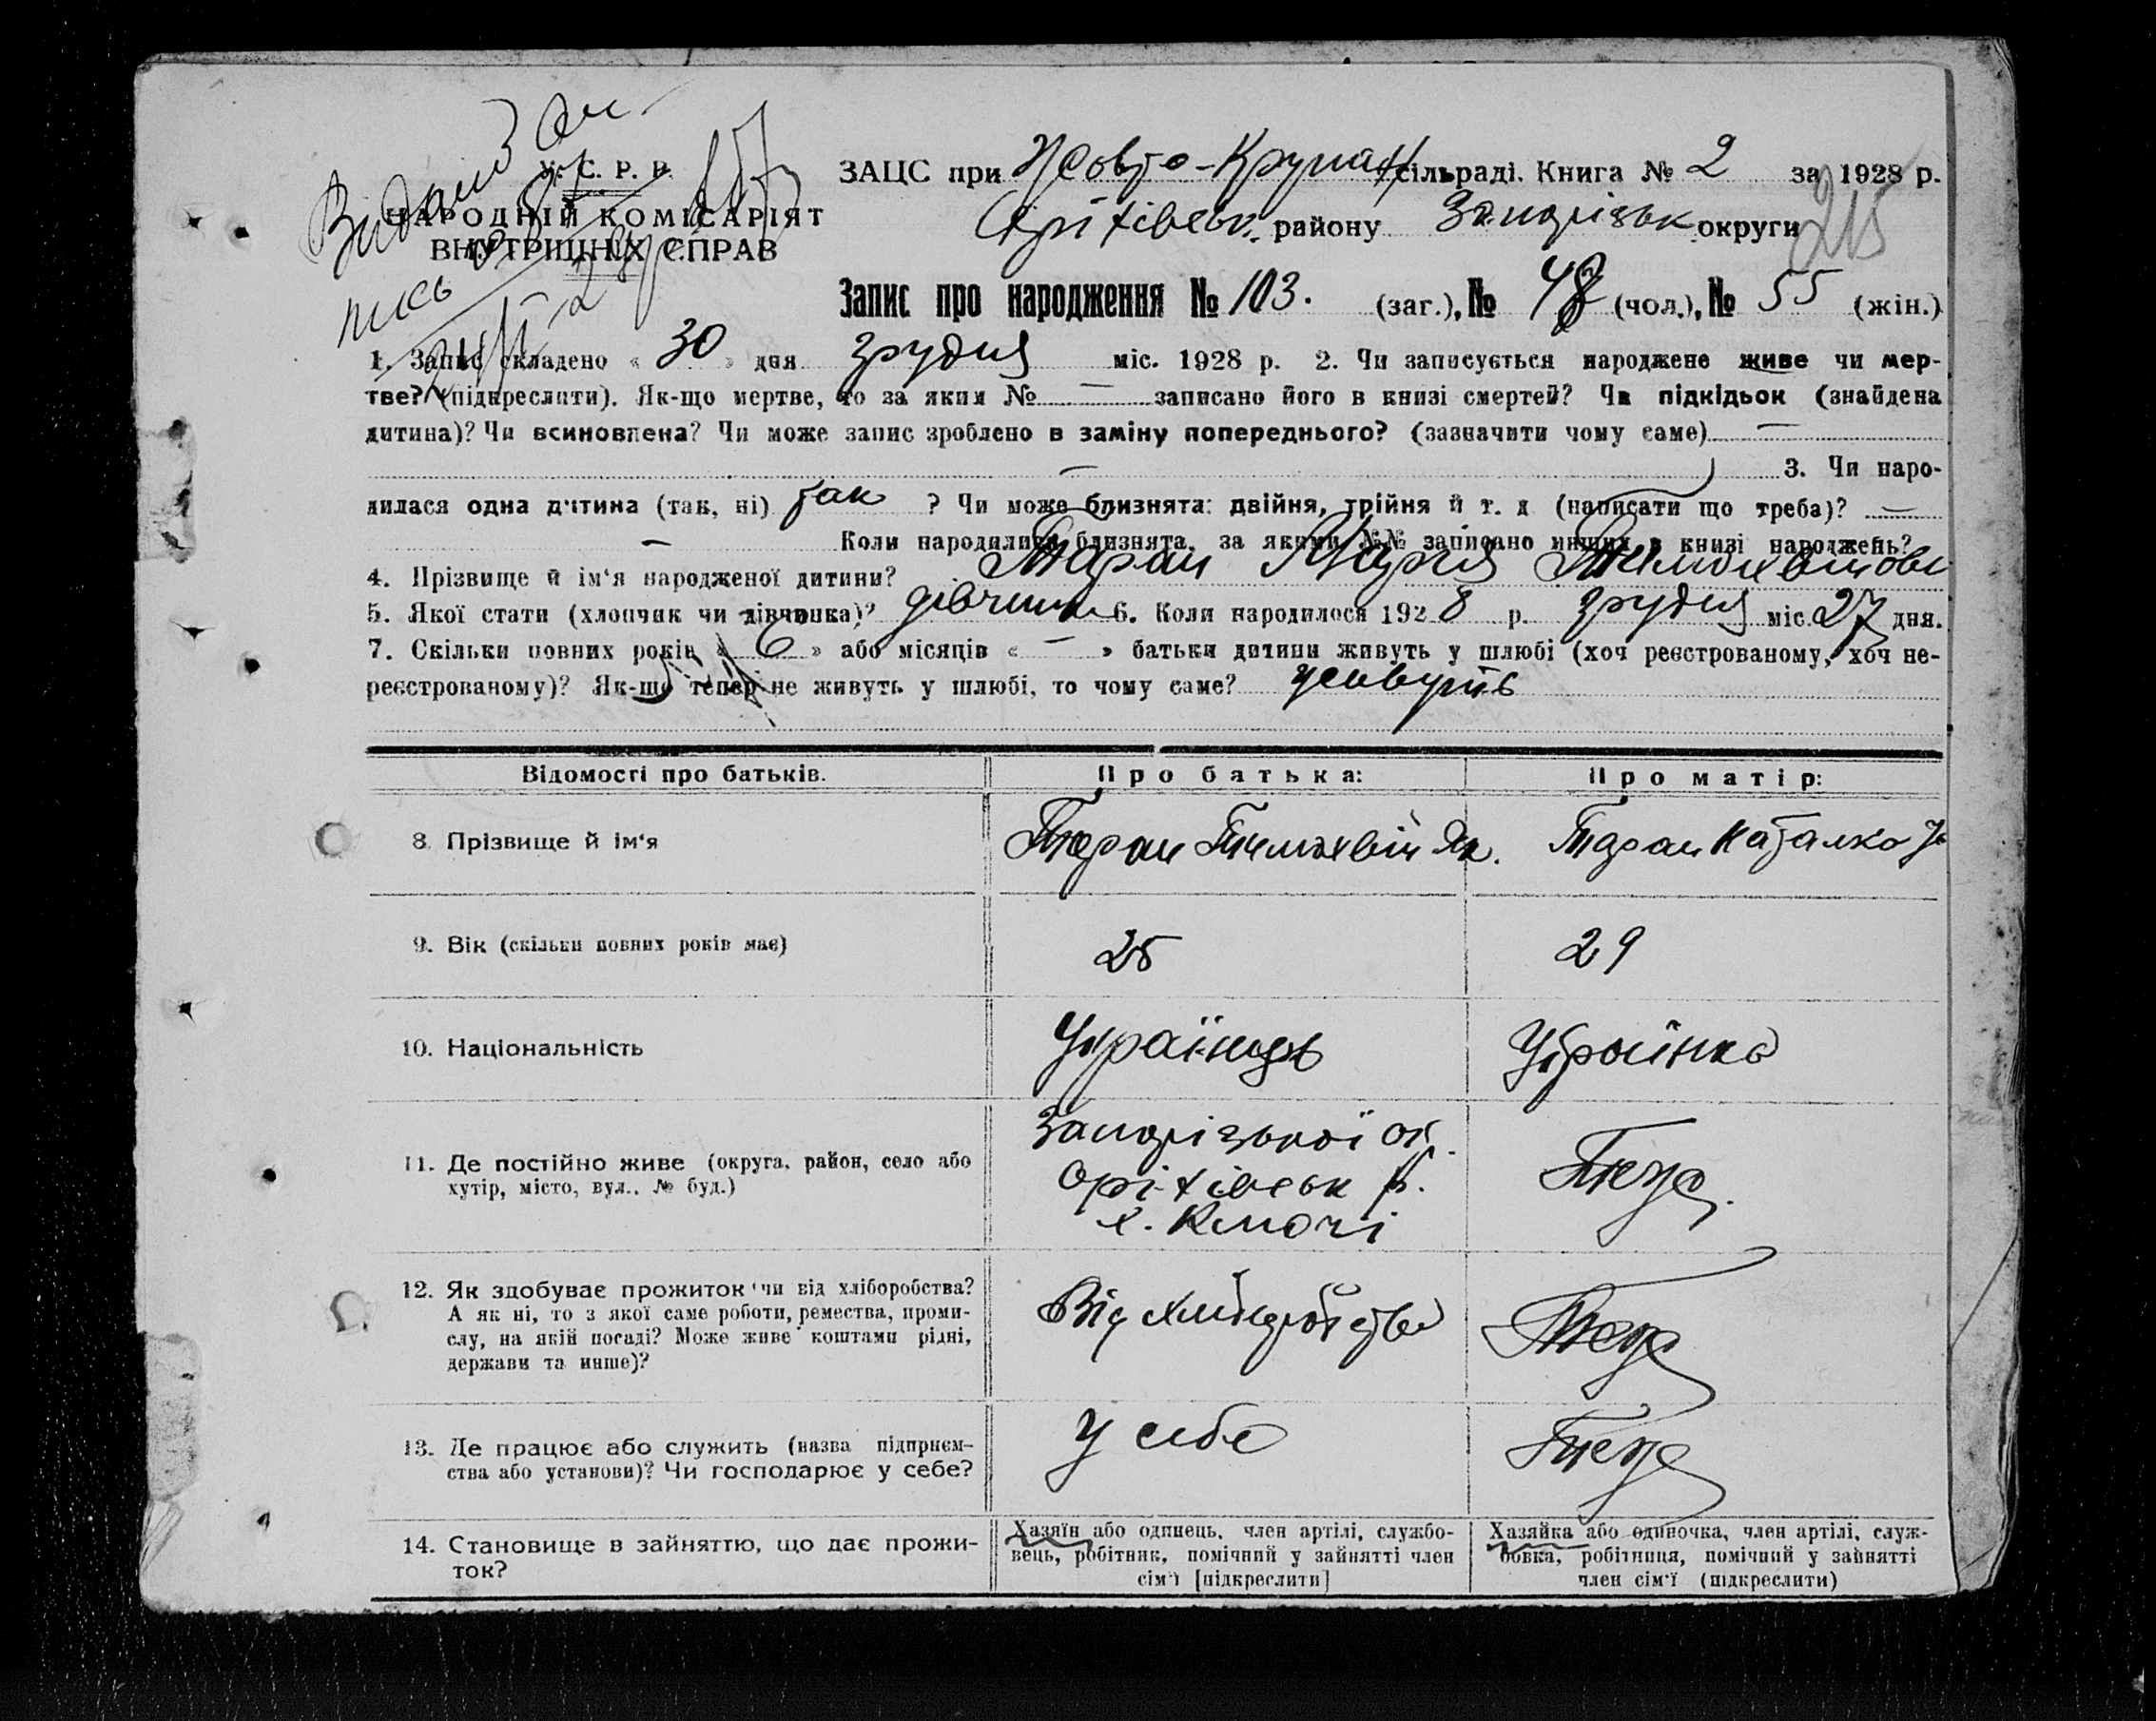 У. С. Р. Р.
НАРОДНІЙ КОМІСАРІЯТ
ВНУТРІШНІХ СПРАВ
ЗАЦС при Жовто-Крупан сільраді. Книга № 2 за 1928 р.
Оріхівськ. району Запорізьк округи
215
Запис про народження № 103. (заг.), № 48 (чол.), № 55 (жін.)
1. Запис складено « 30 » дня грудня міс. 1928 р. 2. Чи записується народжене живе чи мер-
тве? (підкреслити). Як-що мертве, то за яким № — записано його в книзі смертей? Чи підкідьок (знайдена
дитина)? Чи всиновлена? Чи може запис зроблено в заміну попереднього? (зазначити чому саме) —
— 3. Чи наро-
дилася одна дитина (так, ні) так ? Чи може близнята: двійня, трійня й т. д (написати що треба)? —
— Коли народились близнята, за якими №№ записано инших в книзі народжень?
4. Прізвище й ім'я народженої дитини? Таран Марія
5. Якої стати (хлопчик чи дівчинка)? дівчинка 6. Коли народилося 1928 р. грудня міс. 27 дня.
7. Скільки повних років « 6 » або місяців « — » батьки дитини живуть у шлюбі (хоч реєстрованому, хоч не-
реєстрованому)? Як-що тепер не живуть у шлюбі, то чому саме? живуть
Відомості про батьків. Про батька: Про матір:
8. Прізвище й ім'я Таран Тимохвій Як. Таран Наталка
9. Вік (скільки повних років має) 25 29
10. Національність Українець Українка
11. Де постійно живе (округа, район, село або
хутір, місто, вул., № буд.)
Запорізької ок.
Оріхівськ р.
х. Ключі
Теж.
12. Як здобуває прожиток чи від хліборобства?
А як ні, то з якої саме роботи, ремества, проми-
слу, на якій посаді? Може живе коштами рідні,
держави та инше)?
Від хліборобства
Теж
13. Де працює або служить (назва підприєм-
ства або установи)? Чи господарює у себе?
У себе
Теж
14. Становище в зайняттю, що дає прожи-
ток?
Хазяїн або одинець, член артілі, службо-
вець, робітник, помічний у зайнятті член
сім'ї [підкреслити]
Хазяйка або одиночка, член артілі, служ-
бовка, робітниця, помічний у зайнятті
член сім'ї (підкреслити)